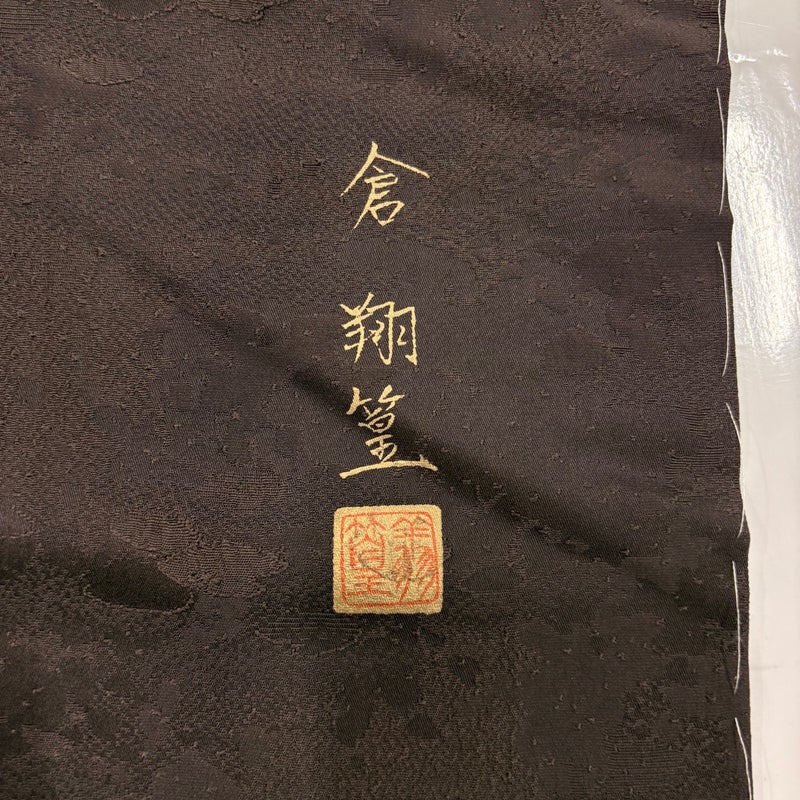 倉
翔篁
翔篁